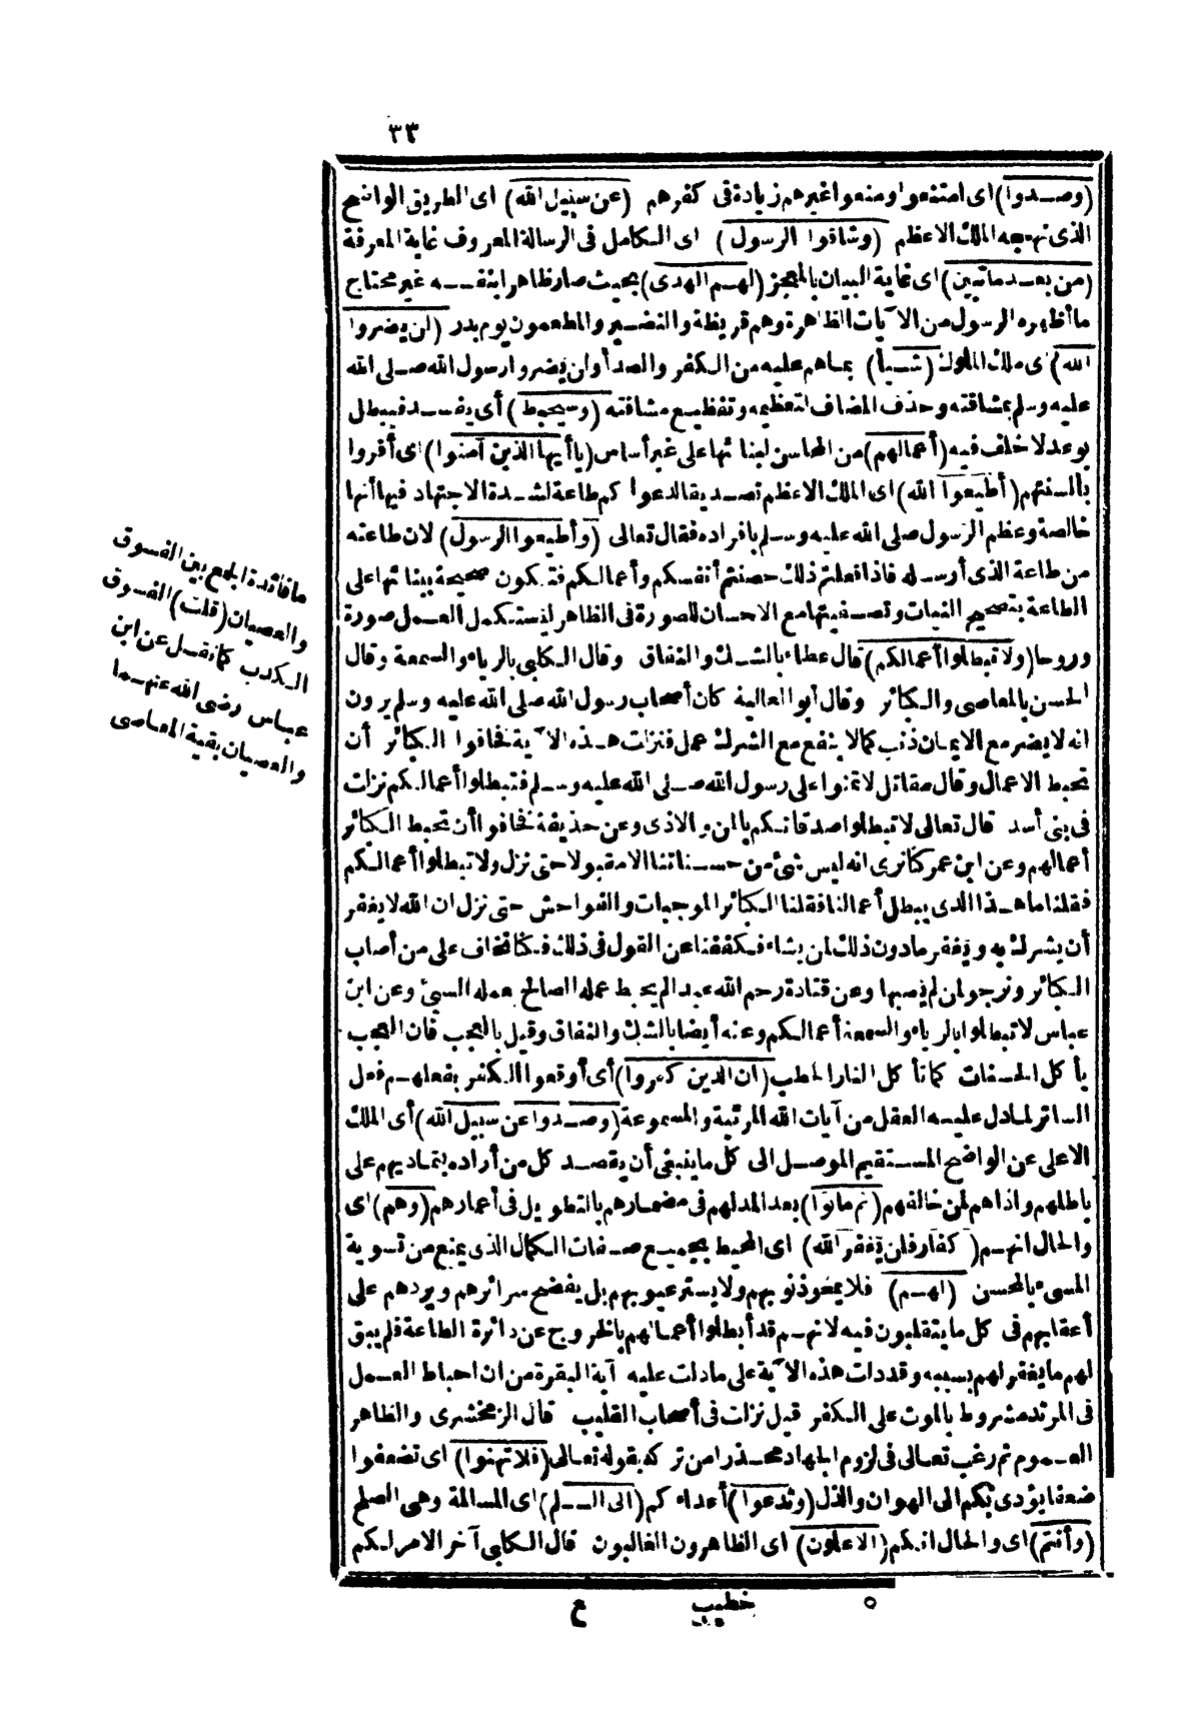 ٣٣
(وصدوا) اى امتنعوا ومنعوا غيرهم زيادة فى كفرهم (عن سبيل الله) اى الطريق الواضح
الذى نهجه الملك الاعظم (وشاقوا الرسول) اى الكامل فى الرسالة المعروف غاية المعرفة
(من بعد ما تبين) اى غاية البيان بالمعجز (لهم الهدى) بحيث صار ظاهرا بنفسه غير محتاج
ما أظهره الرسول من الآيات الظاهرة وهم قريظة والنضير والمطعمون يوم بدر (لن يضروا
الله) اى ملك الملوك (شيأ) بما هم عليه من الكفر والصد أو لن يضروا رسول الله صلى الله
عليه وسلم بمشاقته وحذف المضاف لتعظيمه وتفظيع مشاقته (وسيحبط) أى يفسد فيبطل
بوعد لا خلف فيه (أعمالهم) من المحاسن لبنائها على غير أساس (يا أيها الذين آمنوا) اى أقروا
بألسنتهم (أطيعوا الله) اى الملك الاعظم تصديقا لدعواكم طاعة لشدة الاجتهاد فيها أنها
خالصة وعظم الرسول صلى الله عليه وسلم بافراده فقال تعالى (وأطيعوا الرسول) لان طاعته
من طاعة الذى أرسله فاذا فعلتم ذلك حصنتم أنفسكم وأعمالكم فتكون صحيحة ببنائها على
الطاعة بتصحيح النيات وتصفيتها مع الاحسان للصورة فى الظاهر ليستكمل العمل صورة
وروحا (ولا تبطلوا أعمالكم) قال عطاء بالشك والنفاق وقال الكلبى بالرياء والسمعة وقال
الحسن بالمعاصى والكبائر وقال أبو العالية كان أصحاب رسول الله صلى الله عليه وسلم يرون
انه لا يضر مع الايمان ذنب كما لا ينفع مع الشرك عمل فنزلت هذه الآية فخافوا الكبائر أن
تحبط الاعمال وقال مقاتل لا تمنوا على رسول الله صلى الله عليه وسلم فتبطلوا أعمالكم نزلت
فى بنى أسد قال تعالى لا تبطلوا صدقاتكم بالمن والاذى وعن حذيفة فخافوا أن تحبط الكبائر
أعمالهم وعن ابن عمر كنا نرى انه ليس شئ من حسناتنا الا مقبولا حتى نزل ولا تبطلوا أعمالكم
فقلنا ما هذا الذى يبطل أعمالنا فقلنا الكبائر الموجبات والفواحش حتى نزل ان الله لا يغفر
أن يشرك به ويغفر ما دون ذلك لمن يشاء فكففنا عن القول فى ذلك فكنا نخاف على من أصاب
الكبائر ونرجو لمن لم يصبها وعن قتادة رحم الله عبد الم يحبط عمله الصالح بعمله السيئ وعن ابن
عباس لا تبطلوا بالرياء والسمعة أعمالكم وعنه أيضا بالشك والنفاق وقيل بالعجب فان العجب
يأكل الحسنات كما تأكل النار الحطب (ان الذين كفروا) أى أوقعوا الكفر بفعلهم فعل
الساتر لما دل عليه العقل من آيات الله المرئية والمسموعة (وصدوا عن سبيل الله) أى الملك
الاعلى عن الواضح المستقيم الموصل الى كل ما ينبغى أن يقصد كل من أراده بتماديهم على
باطلهم واذاهم لمن خالفهم (ثم ماتوا) بعد المد لهم فى مضمارهم بالتطويل فى أعمارهم (وهم) اى
والحال انهم (كفار فلن يغفر الله) اى المحيط بجميع صفات الكمال الذى يمنع من تسوية
المسىء بالمحسن (لهم) فلا يمحو ذنوبهم ولا يستر عيوبهم بل يفضح سرائرهم ويردهم على
أعقابهم فى كل ما يتقلبون فيه لانهم قد أبطلوا أعمالهم بالخروج عن دائرة الطاعة فلم يبق
لهم ما يغفر لهم بسببه وقد دلت هذه الآية على ما دلت عليه آية البقرة من ان احباط العمل
فى المرتد مشروط بالموت على الكفر قيل نزلت فى أصحاب القليب قال الزمخشرى والظاهر
العموم ثم رغب تعالى فى لزوم الجهاد محذرا من تركه بقوله تعالى (فلا تهنوا) اى تضعفوا
ضعفا يؤدى بكم الى الهوان والذل (وتدعوا) أعداءكم (الى السلم) اى المسالمة وهى الصلح
(وأنتم) اى والحال انكم (الاعلون) اى الظاهرون الغالبون قال الكلبى آخر الامر لكم
ما فائدة الجمع بين الفسوق
والعصيان (قلت) الفسوق
الكذب كما نقل عن ابن
عباس رضى الله عنهما
والعصيان بقية المعاصى
٥ خطيب ع